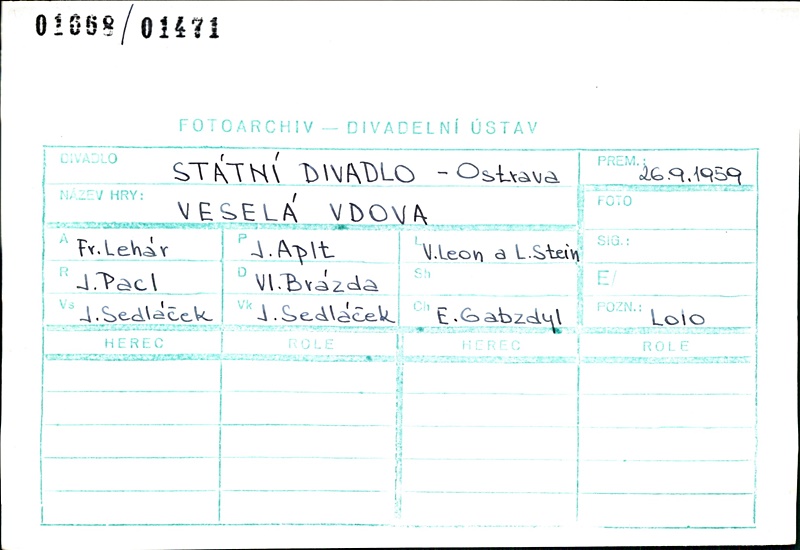 01668/01471
FOTOARCHIV — DIVADELNÍ ÚSTAV
DIVADLO STÁTNÍ DIVADLO - Ostrava PREM.: 26.9.1959
NÁZEV HRY: VESELÁ VDOVA FOTO
A Fr. Lehár P J. Aplt L V. Leon a L. Stein SIG.:
R J. Pacl D Vl. Brázda Sh E/
Vs J. Sedláček Vk J. Sedláček Ch E. Gabzdyl POZN.: Lolo
HEREC ROLE HEREC ROLE